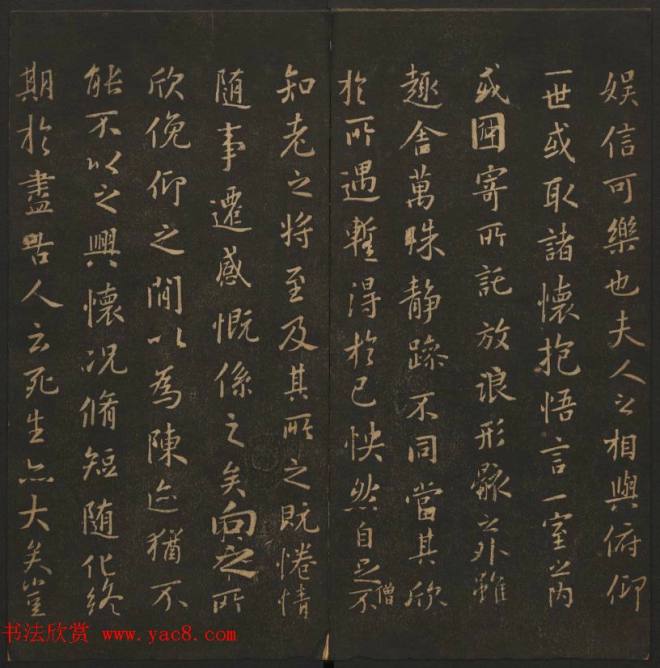 娛信可樂也夫人之相與俯仰
一世或取諸懷抱悟言一室之內
或因寄所託放浪形骸之外雖
趣舍萬殊静躁不同當其欣
於所遇暫得於己怏然自足不
僧
知老之將至及其所之既惓情
隨事遷感慨係之矣向之所
欣俛仰之閒以為陳迹猶不
能不以之興懷况脩短隨化終
期於盡古人云死生亦大矣豈
书法欣赏 www.yac8.com